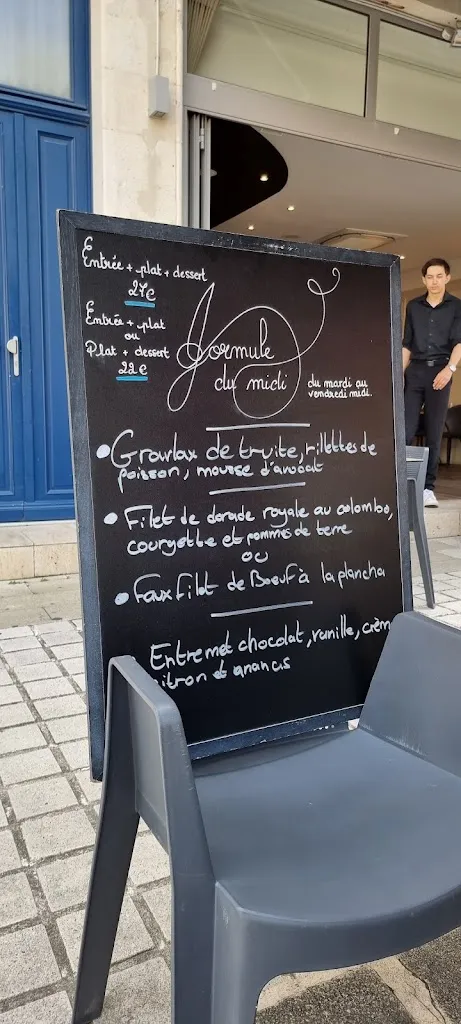 Entrée + plat + dessert
27€
Entrée + plat
ou
Plat + dessert
22€
Formule
du midi
du mardi au
vendredi midi.
Gravlax de truite, rillettes de
poisson, mousse d'avocat
Filet de dorade royale au colombo,
courgette et pommes de terre
ou
Faux Filet de Boeuf à la plancha
Entremet chocolat, vanille, crèm
itron et ananas